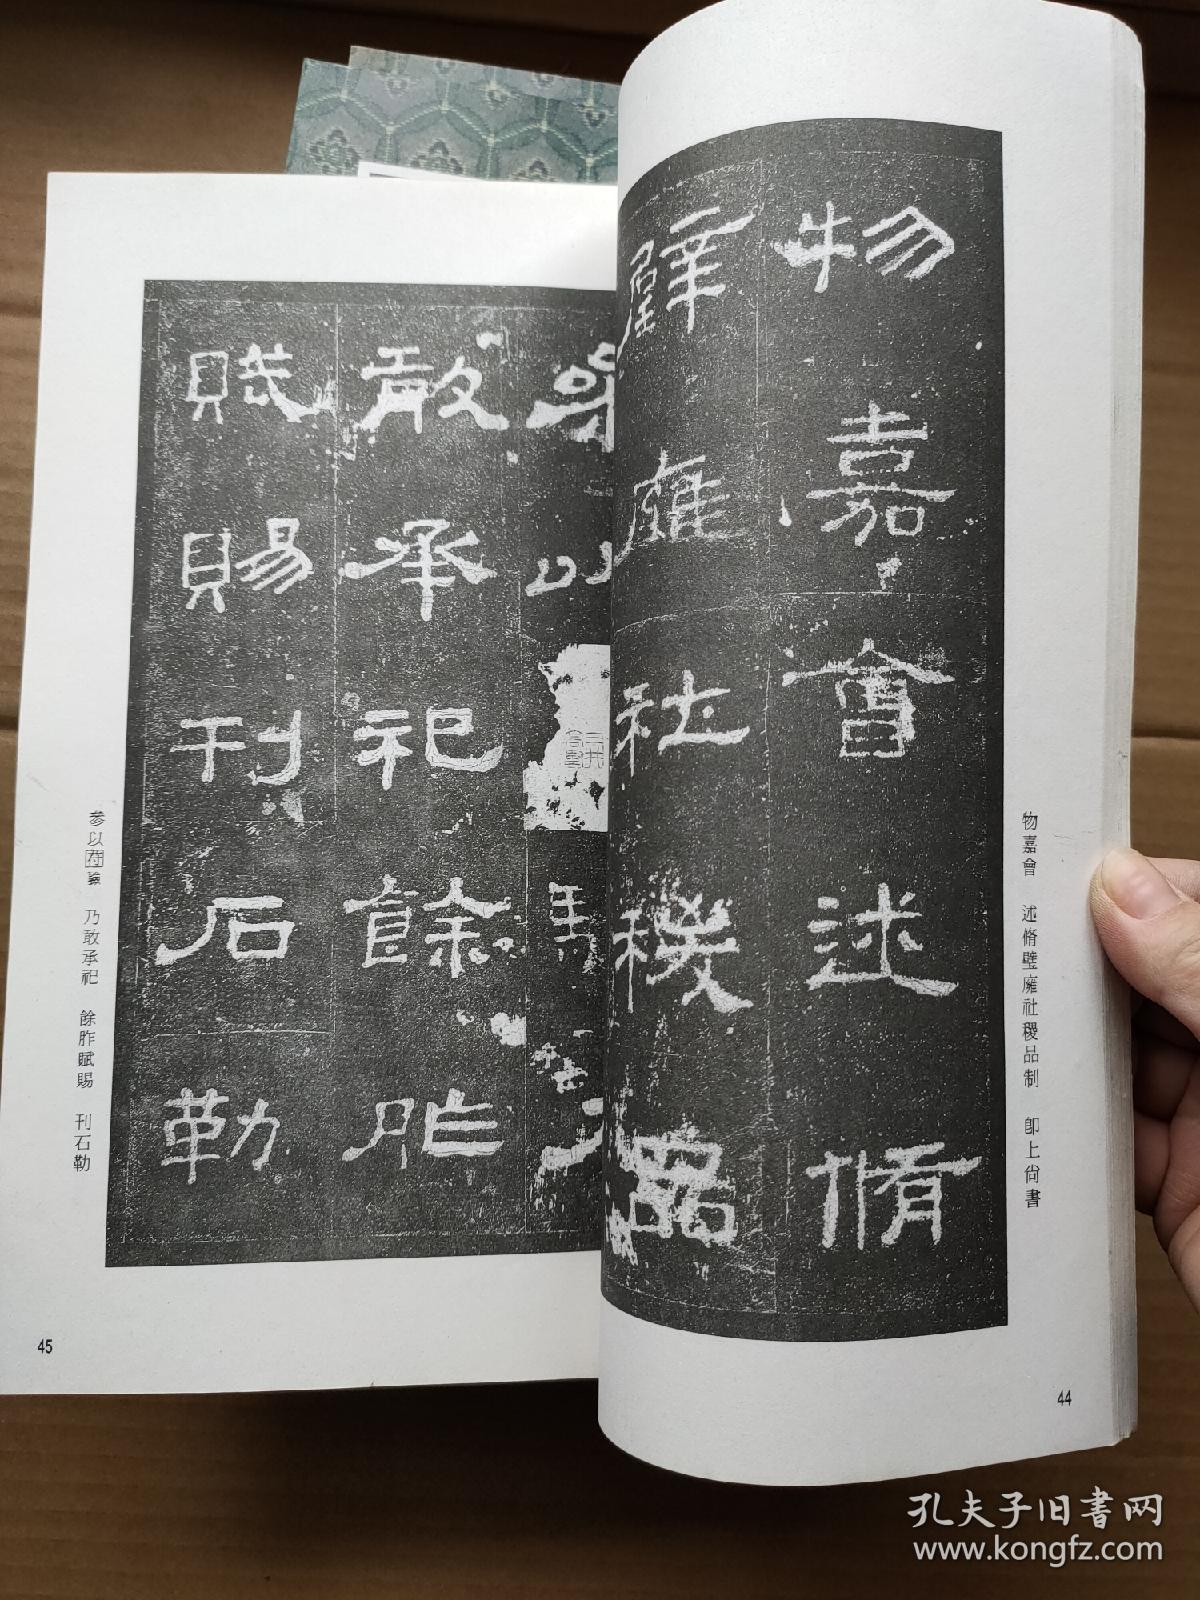 物嘉會述脩
辟廱社稷品
敢承祀餘胙
賦賜刊石勒
物嘉會 述脩璧廱社稷品制 卽上尙書
参以苻驗 乃敢承祀 餘胙賦賜 刊石勒
44
45
孔夫子旧书网
www.kongfz.com